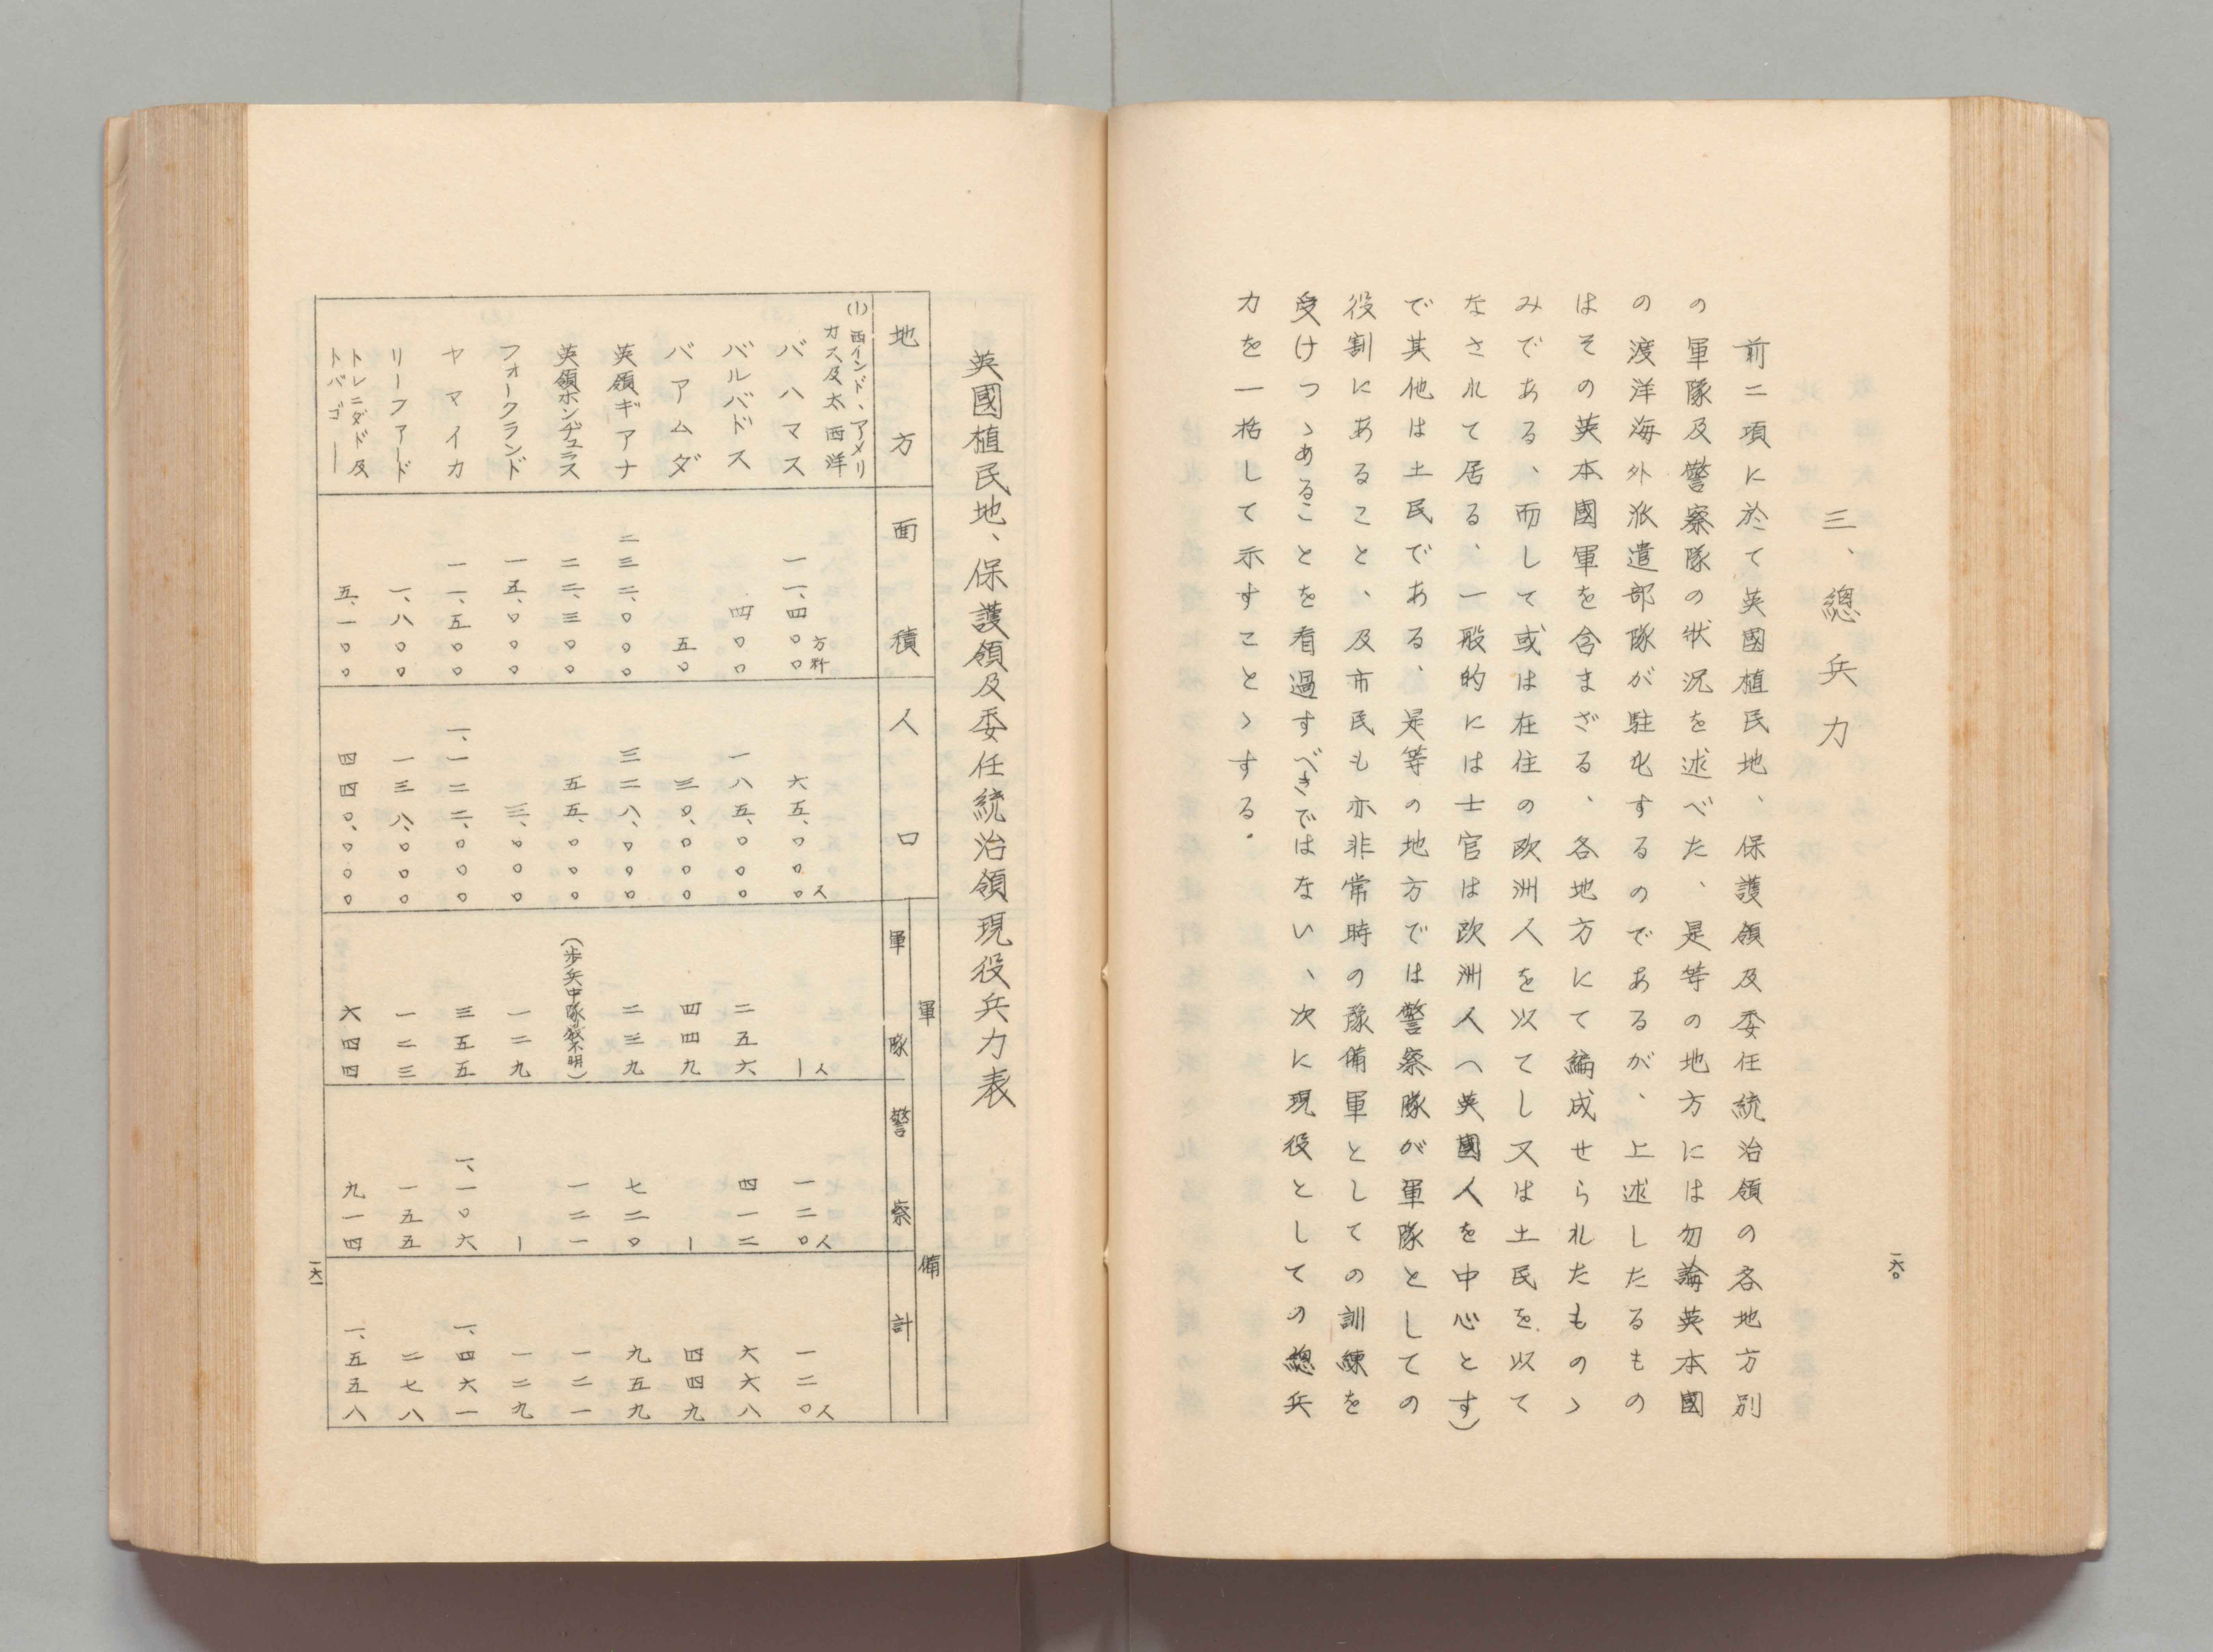 三、總兵力
前二項に於て英國植民地、保護領及委任統治領の各地方別
の軍隊及警察隊の狀況を述べた、是等の地方には勿論英本國
の渡洋海外派遣部隊が駐屯するのであるが、上述したるもの
はその英本國軍を含まざる、各地方にて編成せられたものゝ
みである、而して或は在住の欧洲人を以てし又は土民を以て
なされて居る、一般的には士官は欧洲人(英國人を中心とす)
で其他は土民である、是等の地方では警察隊が軍隊としての
役割にあること、及市民も亦非常時の豫備軍としての訓練を
受けつゝあることを看過すべきではない、次に現役としての總兵
力を一括して示すことゝする。
一六〇
英國植民地、保護領及委任統治領現役兵力表
地方 面積 人口 軍備
軍隊 警察 計
(1)西インド、アメリ
カス及太西洋
バハマス 一一、四〇〇方粁 六五、〇〇〇人 ー人 一二〇人 一二〇人
バルバドス 四〇〇 一八五、〇〇〇 二五六 四一二 六六八
バアムダ 五〇 三〇、〇〇〇 四四九 ー 四四九
英領ギアナ 二三二、〇〇〇 三二八、〇〇〇 二三九 七二〇 九五九
英領ホンデュラス 二二、三〇〇 五五、〇〇〇 (歩兵中隊數不明) 一二一 一二一
フォークランド 一五、〇〇〇 三、〇〇〇 一二九 ー 一二九
ヤマイカ 一一、五〇〇 一、一二二、〇〇〇 三五五 一、一〇六 一、四六一
リーファード 一、八〇〇 一三八、〇〇〇 一二三 一五五 二七八
トレニダド及
トバゴー 五、一〇〇 四四〇、〇〇〇 六四四 九一四 一、五五八
一六一